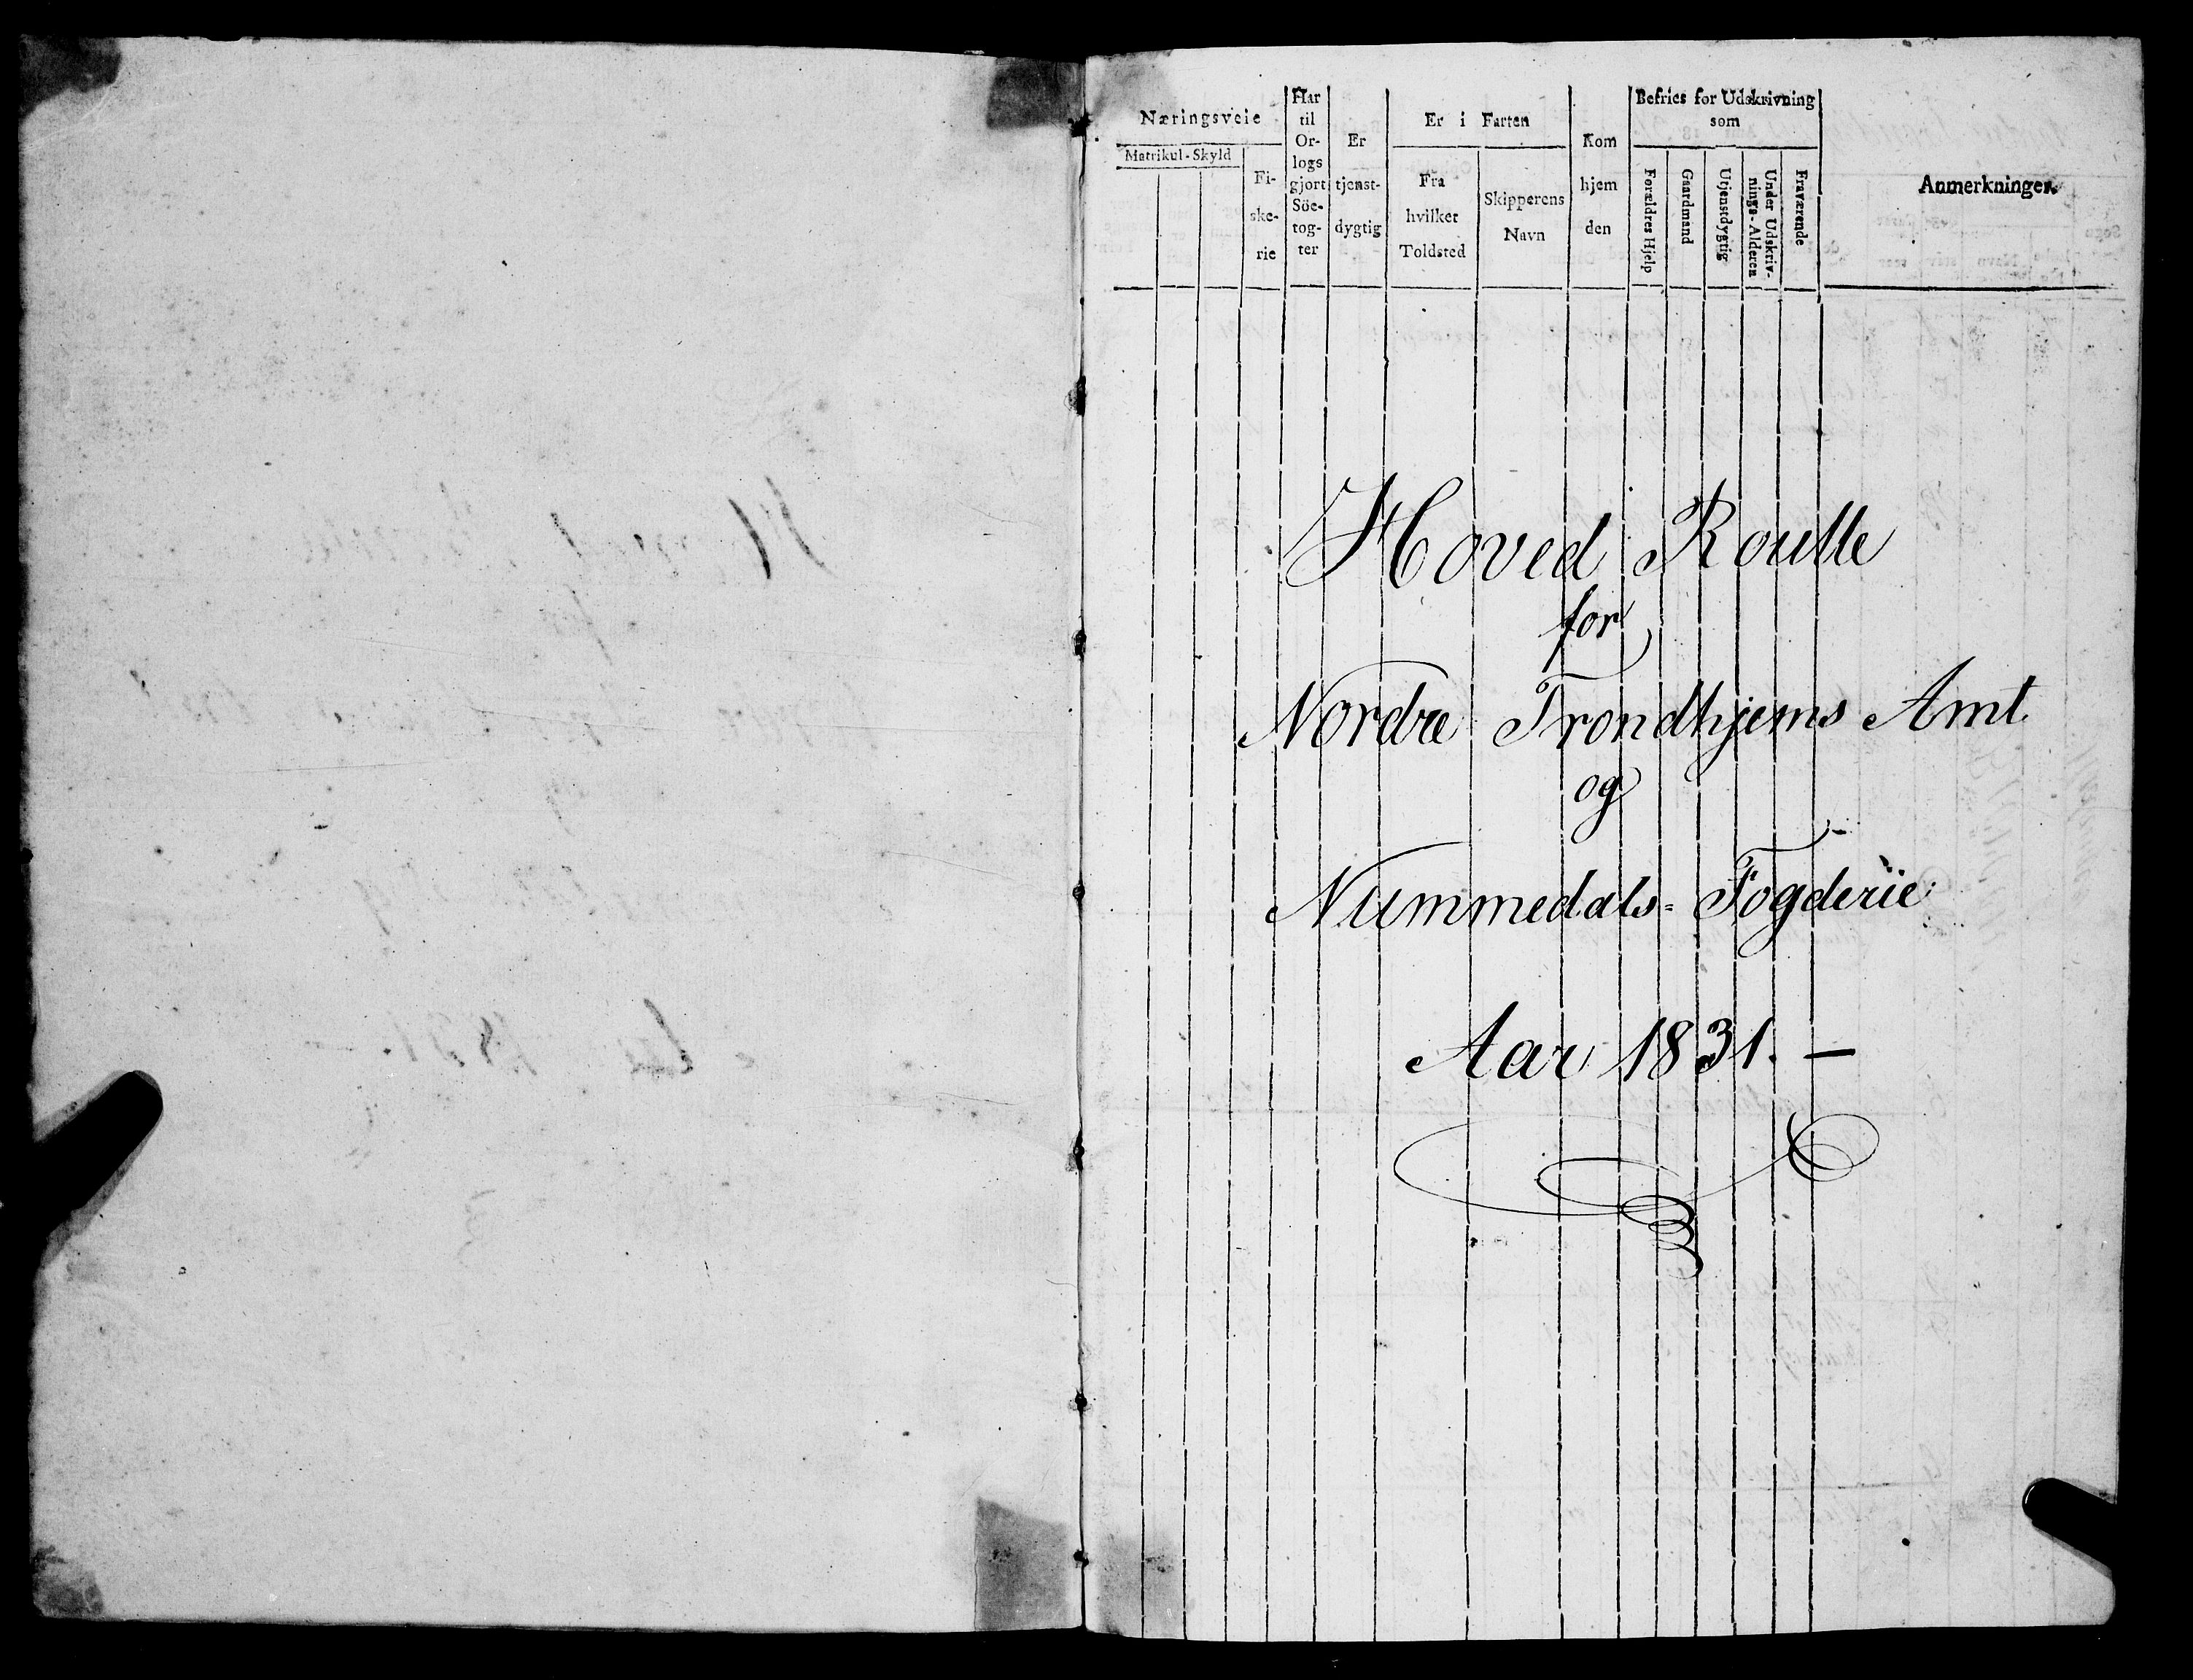 Næringsveie
Matrikul-Skyld
Fi-
ske-
rie
Har
til
Or-
logs
gjort
Söe-
tog-
ter
Er
tjenst-
dygtig
Er i Farten
Fra
hvilket
Toldsted
Skipperens
Navn
Kom
hjem
den
Befries for Udskrivning
som
Forældres Hjelp
Gaardmand
Utjenstdygtig
Under Udskriv-
nings-Alderen
Fraværende
Anmerkninger.
Hoved Roulle
for
Nordre Trondhjems Amt
og
Nummedals-Fogderie
Aar 1831. —